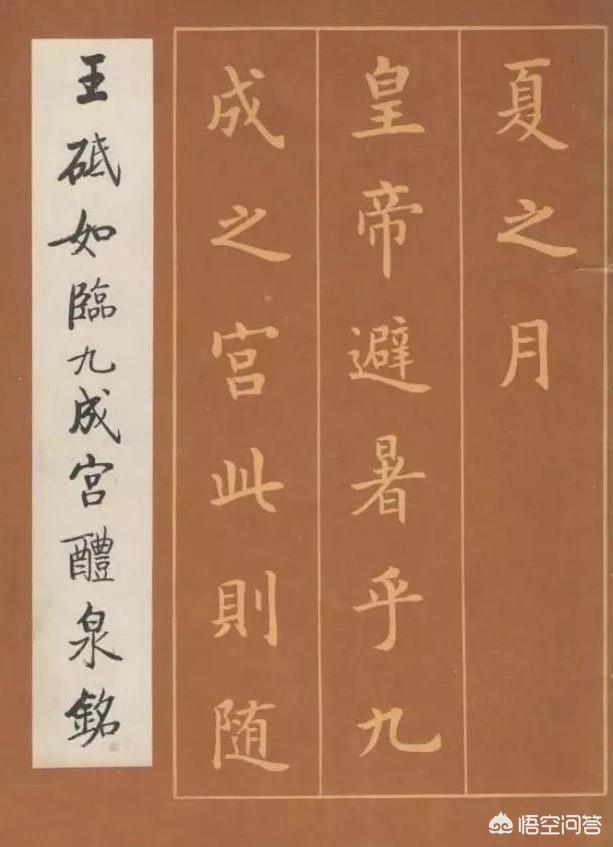 夏之月
皇帝避暑乎九
成之宫此則随
王砥如臨九成宫醴泉銘
悟空问答